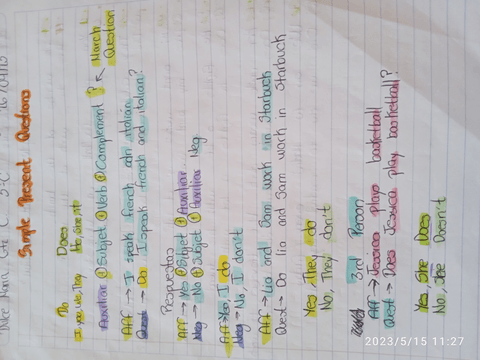 Simple Present Questions
Do Does
I, you, we, they He, she, it
Auxiliar + Subject + Verb + Complement ? ← March
Question
Aff → I speak french and italian
Quest → Do I speak french and italian?
Respuestas
Aff → Yes + Subject + Auxiliar
Neg → No + Subject + Auxiliar Neg
Aff → Yes, I do
Neg → No, I don't
Aff → Lia and Sam work in Starbuck
Quest → Do lia and Sam work in Starbuck
Yes, They do
No, They don't
3rd Person
Aff → Jessica plays basketball
Quest → Does Jessica play basketball?
Yes She Does
No, She Doesn't
2023/5/15 11:27